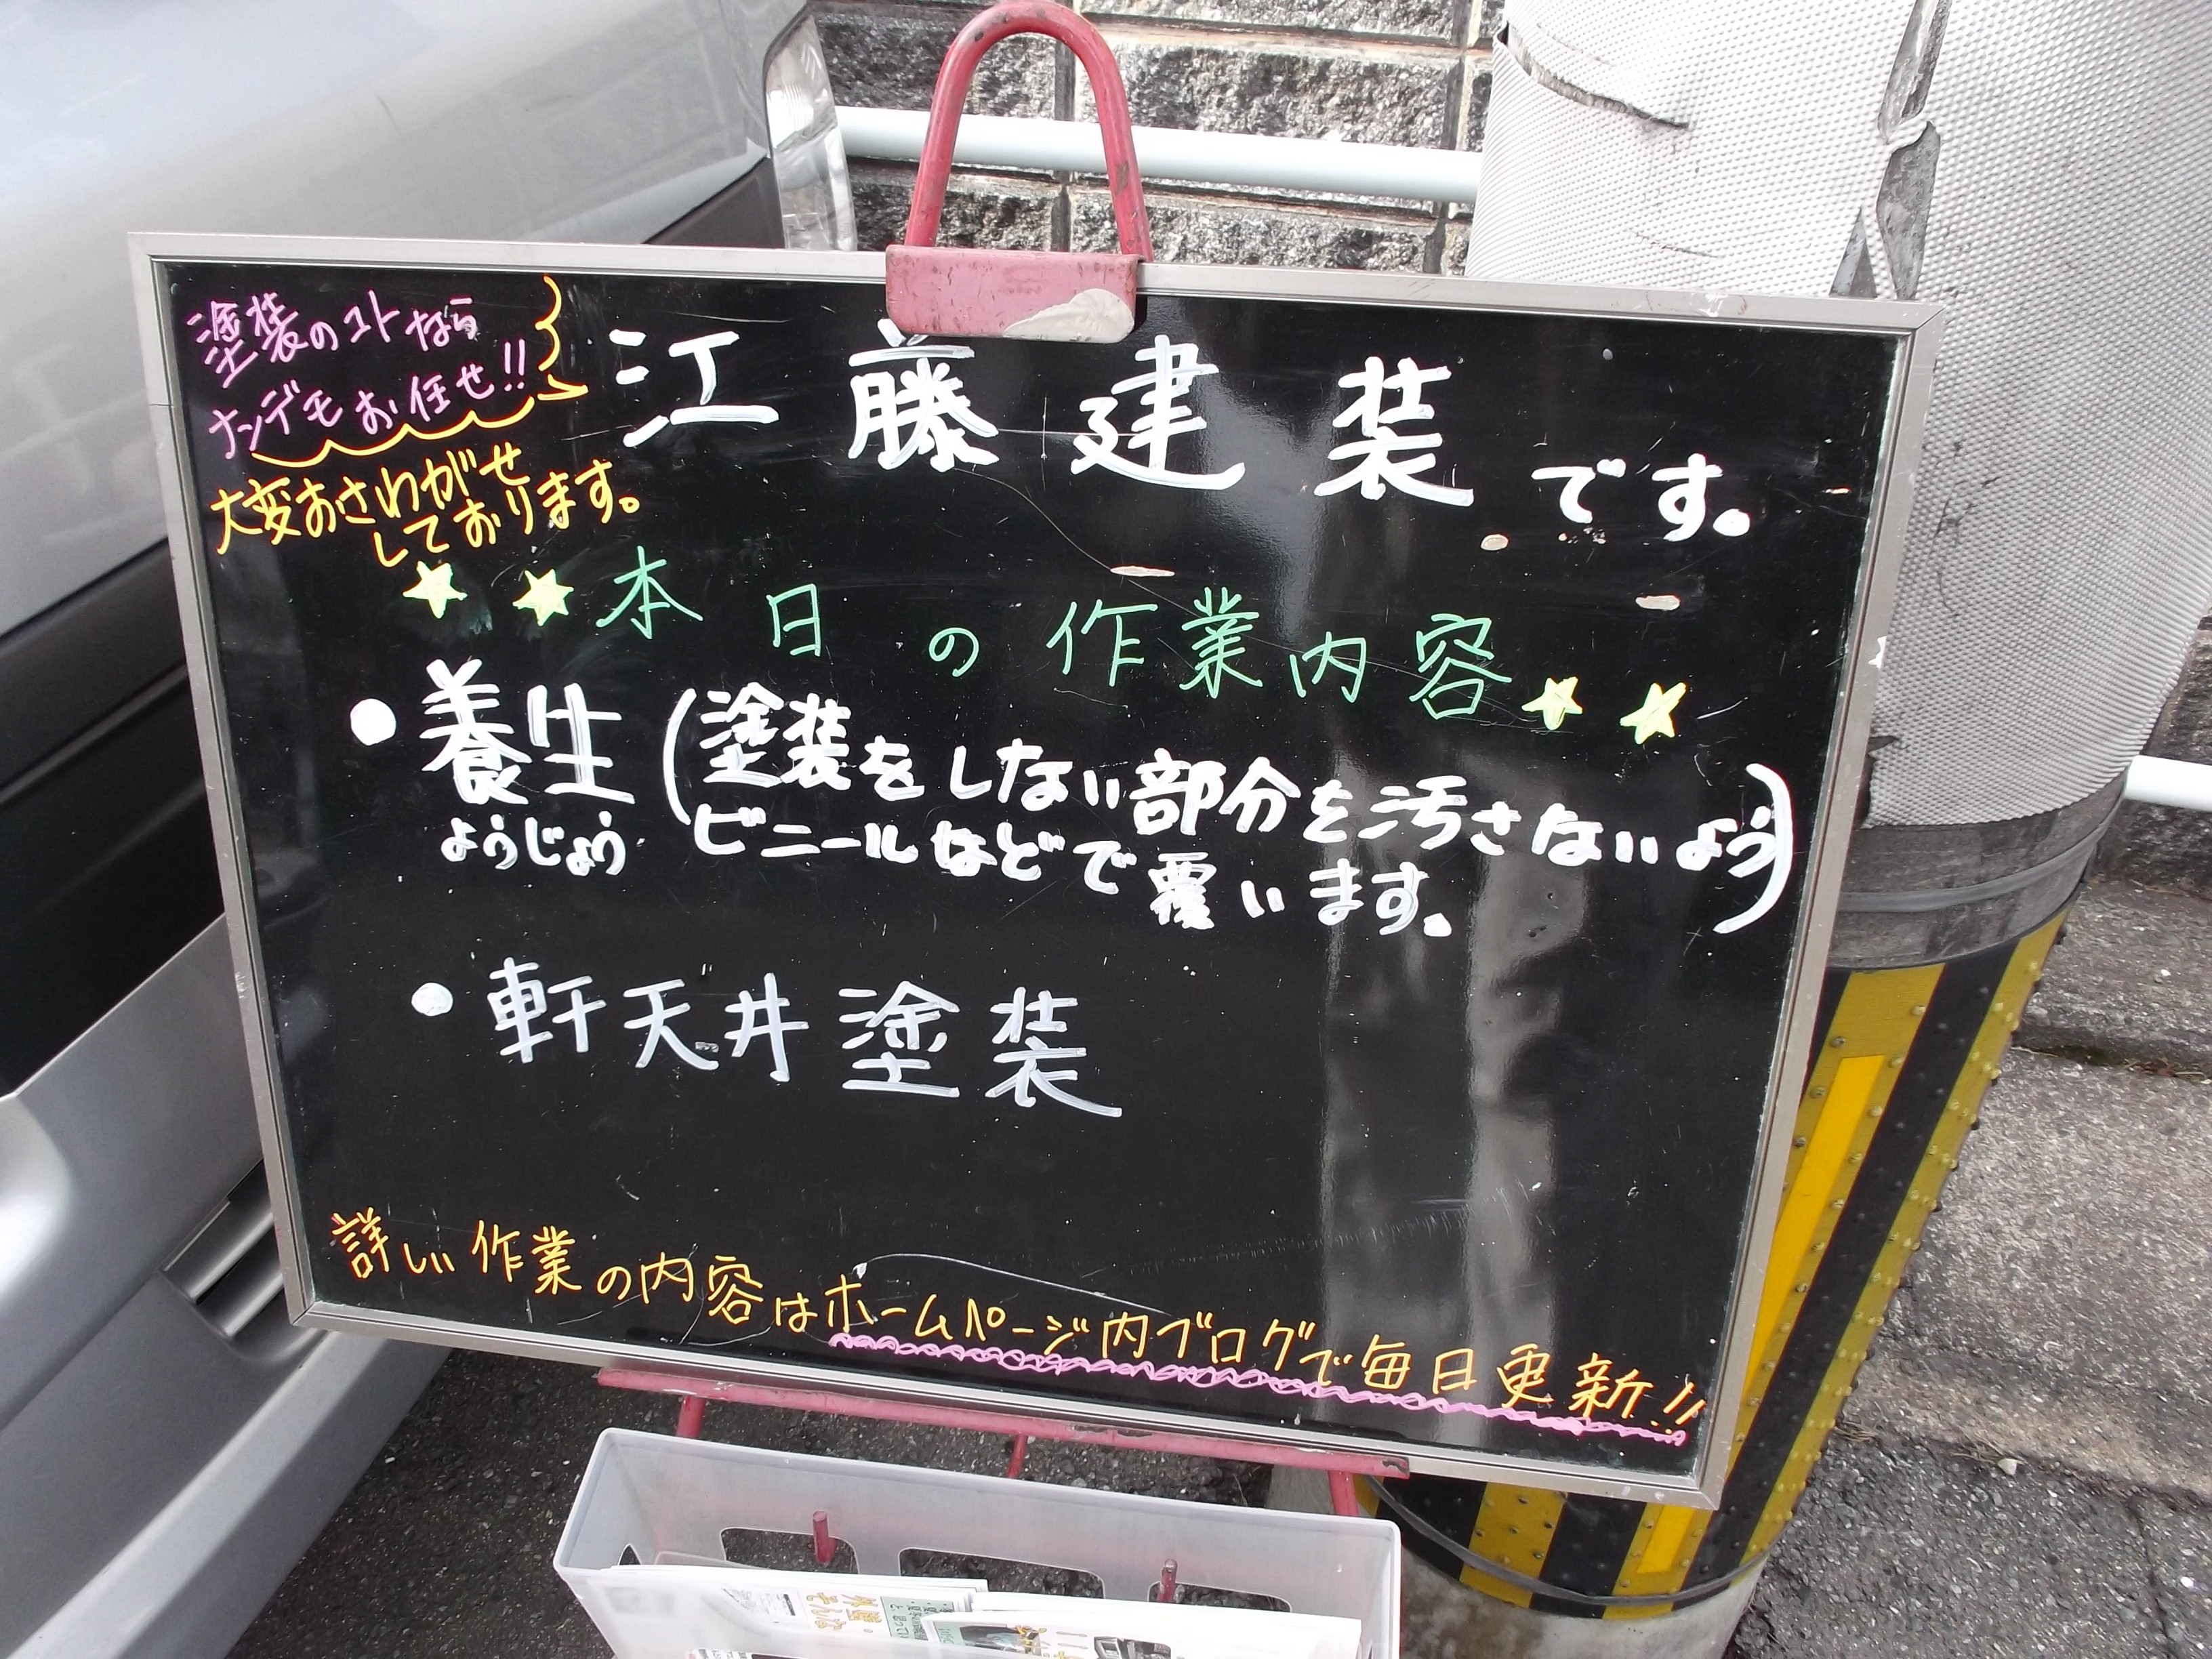 塗装のコトなら
ナンデモお任せ!!
江藤建装です。
大変おさわがせ
しております。
★★本日の作業内容★★
●養生(塗装をしない部分を汚さないよう
ようじょう ビニールなどで覆います。)
●軒天井塗装
詳しい作業の内容はホームページ内ブログで毎日更新!!